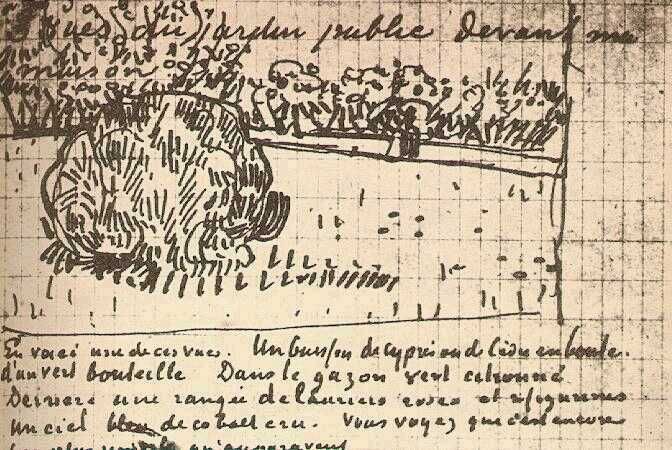 vues du jardin public devant ma
maison
En voici une de ces vues. Un buisson de cypres ou de cèdre en boule.
d'un vert bouteille Dans le gazon vert citronné
Derriere une rangée de lauriers roses et
un ciel bleu de cobalt cru. Vous voyez que c'est encore
plus simple qu'auparavant